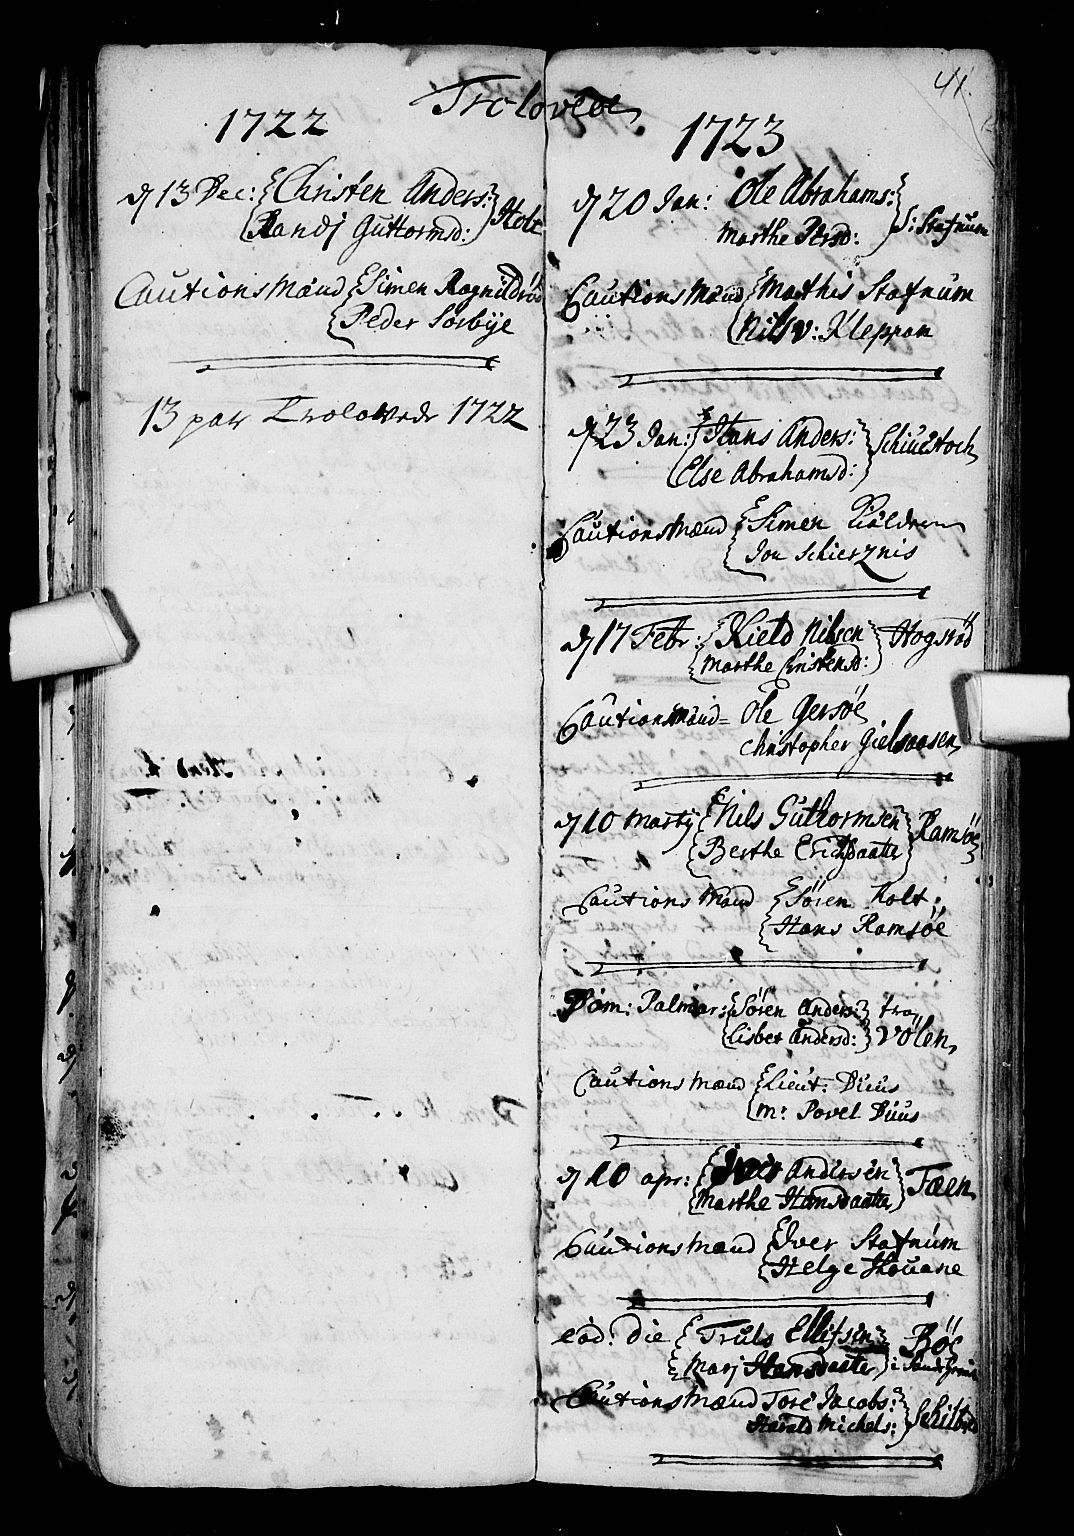 41.
Trolovede
1722
d 13 Dec: Christen Anders:
Randj Guttormsd: Holt
Cautions Mænd Simen Rognildrød
Peder Sörbÿe
13 par Trolovede 1722
1723
d 20 Jan: Ole Abrahams:
Marthe Persd: S: Stafnum
Cautions Mænd Mathis Stafnum
Nils v: Kleppan
d 23 Jan: Hans Anders:
Else Abrahamsd: Schiuestoch
Cautions Mænd Simen
Jon Schierznis
d 17 Febr: Kield Nilsen Hogsröd
Marthe Christensd:
Cautionsmænd = Ole Gersöe
Christopher Gielsaasen
d 10 Martij Nils Guttormsen Ramsöe
Berthe Erichdaatter
Cautions Mænd Sören Holt
Hans Ramsöe
Dom: Palmar: Sören Anders: fra
Lisbet Andersd: Völen
Cautions Mænd Lieut: Duus
Mr Povel Duus
d 10 apr: Iver Andersen Fæen
Marthe Hansdaatter
Cautions Mænd Iver Stafnum
Helge Skouane
eod: die Truls Ellefsen Böe
Marj Hansdaatter i
Cautions Mænd Tore Jacobs:
Harald Michels: